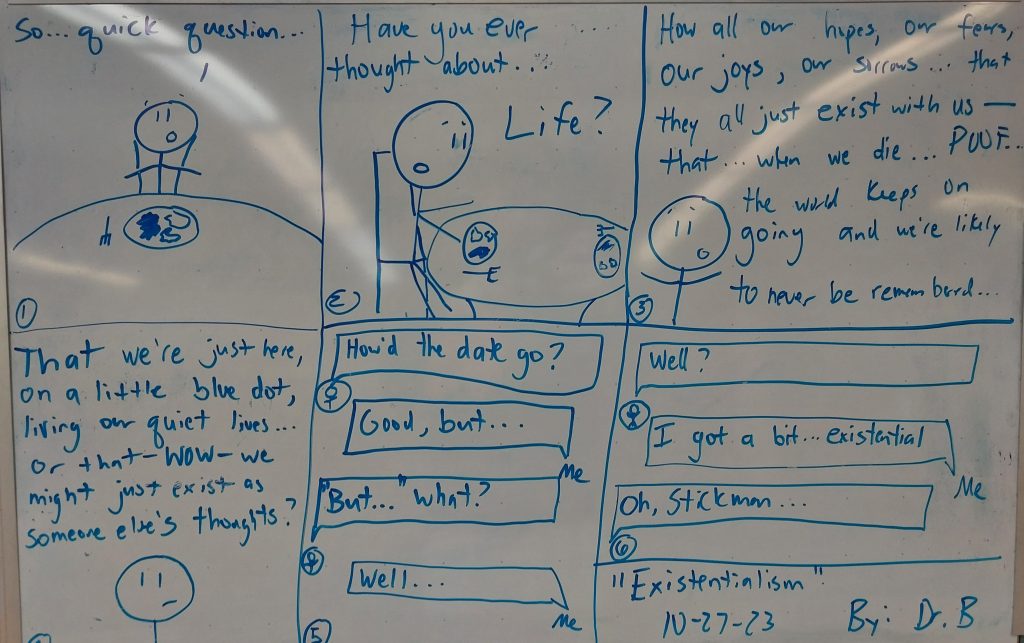 So... quick question...
1
Have you ever
thought about...
Life?
2
How all our hopes, our fears,
our joys, our sorrows... that
they all just exist with us —
that... when we die... POOF...
the world keeps on
going and we're likely
to never be remembered...
3
That we're just here,
on a little blue dot,
living our quiet lives...
or that-WOW-we
might just exist as
someone else's thoughts?
How'd the date go?
Good, but...
Me
"But..." what?
Well...
Me
5
Well?
I got a bit... existential
Me
Oh, Stickman...
6
"Existentialism"
10-27-23
By: Dr. B